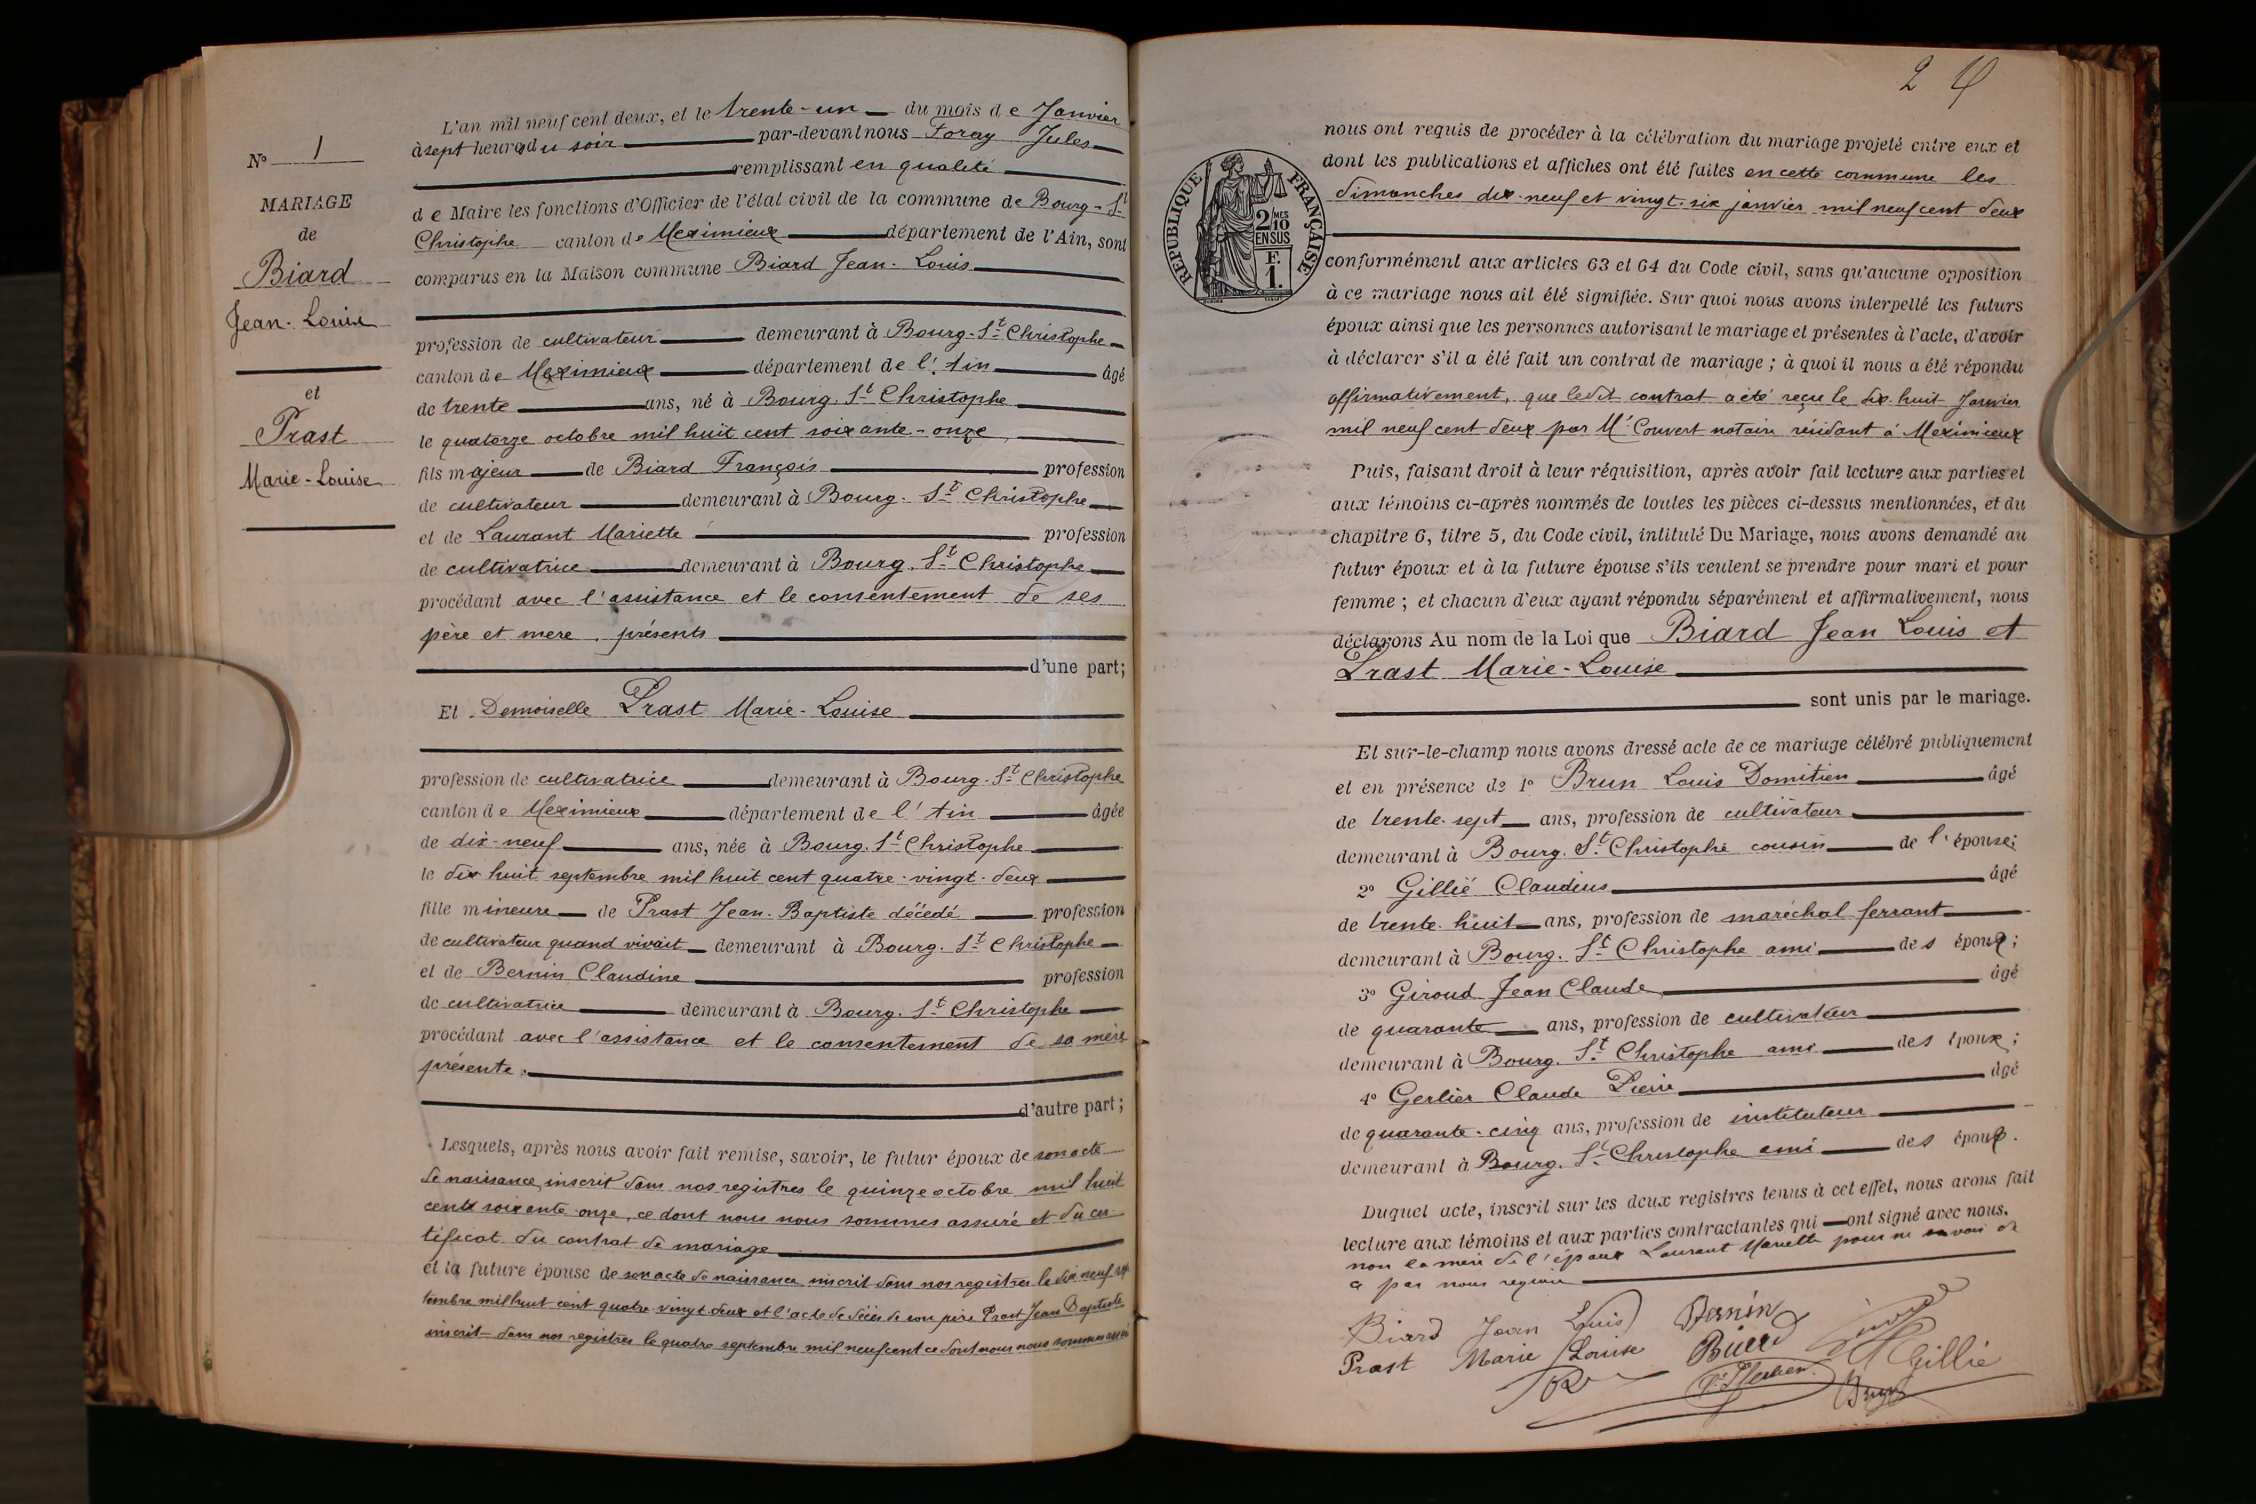 N° 1
MARIAGE
de
Biard
Jean-Louis
et
Prast
Marie-Louise
L'an mil neuf cent deux, et le trente-un du mois de Janvier
à sept heures du soir par-devant nous Foray Jules
remplissant en qualité
de Maire les fonctions d'Officier de l'état civil de la commune de Bourg-St
Christophe canton de Meximieux département de l'Ain, sont
comparus en la Maison commune Biard Jean-Louis
profession de cultivateur demeurant à Bourg-St Christophe
canton de Meximieux département de l'Ain âgé
de trente ans, né à Bourg-St Christophe
le quatorze octobre mil huit cent soixante-onze
fils majeur de Biard François profession
de cultivateur demeurant à Bourg-St Christophe
et de Laurant Mariette profession
de cultivatrice demeurant à Bourg-St Christophe
procédant avec l'assistance et le consentement de ses
père et mère présents
d'une part;
Et Demoiselle Prast Marie-Louise
profession de cultivatrice demeurant à Bourg-St Christophe
canton de Meximieux département de l'Ain âgée
de dix-neuf ans, née à Bourg-St Christophe
le dix huit septembre mil huit cent quatre-vingt-deux
fille mineure de Prast Jean-Baptiste décédé profession
de cultivateur quand vivait demeurant à Bourg-St Christophe
et de Bernin Claudine profession
de cultivatrice demeurant à Bourg-St Christophe
procédant avec l'assistance et le consentement de sa mère
présente.
d'autre part;
Lesquels, après nous avoir fait remise, savoir, le futur époux de son acte
de naissance inscrit dans nos registres le quinze octobre mil huit
cent soixante-onze, ce dont nous nous sommes assuré et du cer
tificat du contrat de mariage
et la future épouse de son acte de naissance inscrit dans nos registres le dix neuf sep
tembre mil huit cent quatre-vingt-deux et l'acte de décès de son père Prast Jean Baptiste
inscrit dans nos registres le quatre septembre mil neuf cent ce dont nous nous sommes assuré
2
RÉPUBLIQUE FRANÇAISE
2 MES
10
EN SUS
F.
1.
nous ont requis de procéder à la célébration du mariage projeté entre eux et
dont les publications et affiches ont été faites en cette commune les
dimanches dix-neuf et vingt-six janvier mil neuf cent deux
conformément aux articles 63 et 64 du Code civil, sans qu'aucune opposition
à ce mariage nous ait été signifiée. Sur quoi nous avons interpellé les futurs
époux ainsi que les personnes autorisant le mariage et présentes à l'acte, d'avoir
à déclarer s'il a été fait un contrat de mariage; à quoi il nous a été répondu
affirmativement, que ledit contrat a été reçu le dix-huit Janvier
mil neuf cent deux par Me Convert notaire résidant à Meximieux
Puis, faisant droit à leur réquisition, après avoir fait lecture aux parties et
aux témoins ci-après nommés de toutes les pièces ci-dessus mentionnées, et du
chapitre 6, titre 5, du Code civil, intitulé Du Mariage, nous avons demandé au
futur époux et à la future épouse s'ils veulent se prendre pour mari et pour
femme; et chacun d'eux ayant répondu séparément et affirmativement, nous
déclarons Au nom de la Loi que Biard Jean Louis et
Prast Marie-Louise
sont unis par le mariage.
Et sur-le-champ nous avons dressé acte de ce mariage célébré publiquement
et en présence de 1° Brun Louis Domitien âgé
de trente-sept ans, profession de cultivateur
demeurant à Bourg-St Christophe cousin de l'épouse;
2° Gillié Claudius âgé
de trente-huit ans, profession de maréchal ferrant
demeurant à Bourg-St Christophe ami des époux;
3° Giroud Jean Claude âgé
de quarante ans, profession de cultivateur
demeurant à Bourg-St Christophe ami des époux;
4° Gerlier Claude Pierre âgé
de quarante-cinq ans, profession de instituteur
demeurant à Bourg-St Christophe ami des époux.
Duquel acte, inscrit sur les deux registres tenus à cet effet, nous avons fait
lecture aux témoins et aux parties contractantes qui ont signé avec nous.
non la mère de l'époux Laurent Mariette pour ne savoir de
ce par nous requise
Biard Jean Louis Bernin
Prast Marie Louise Biard Gillié
Brun